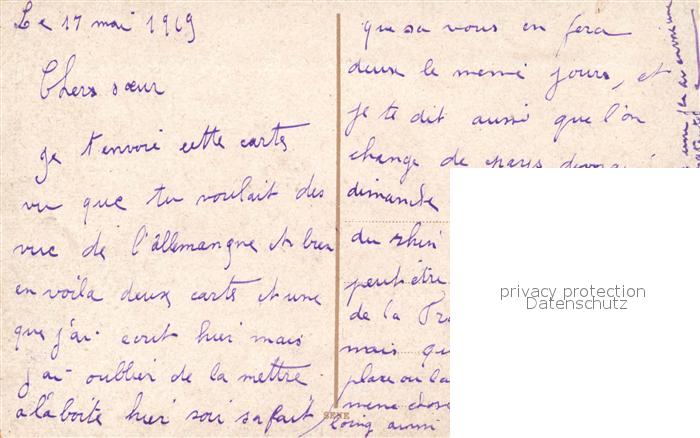 Le 17 mai 1919
Chers sœur
je t'envoie cette cartes
vu que tu voulait des
vue de l'allemangne et bien
en voila deux carts et une
que j'ai ecrit hier mais
j'ai oublier de la mettre
a la boite hier soir sa fait
que sa vous en fera
deux le meme jours, et
je te dit aussi que l'on
change de
dimanche
du rhin
peut être
de la
mais
place ou la
meme chose
loing aussi
privacy protection
Datenschutz